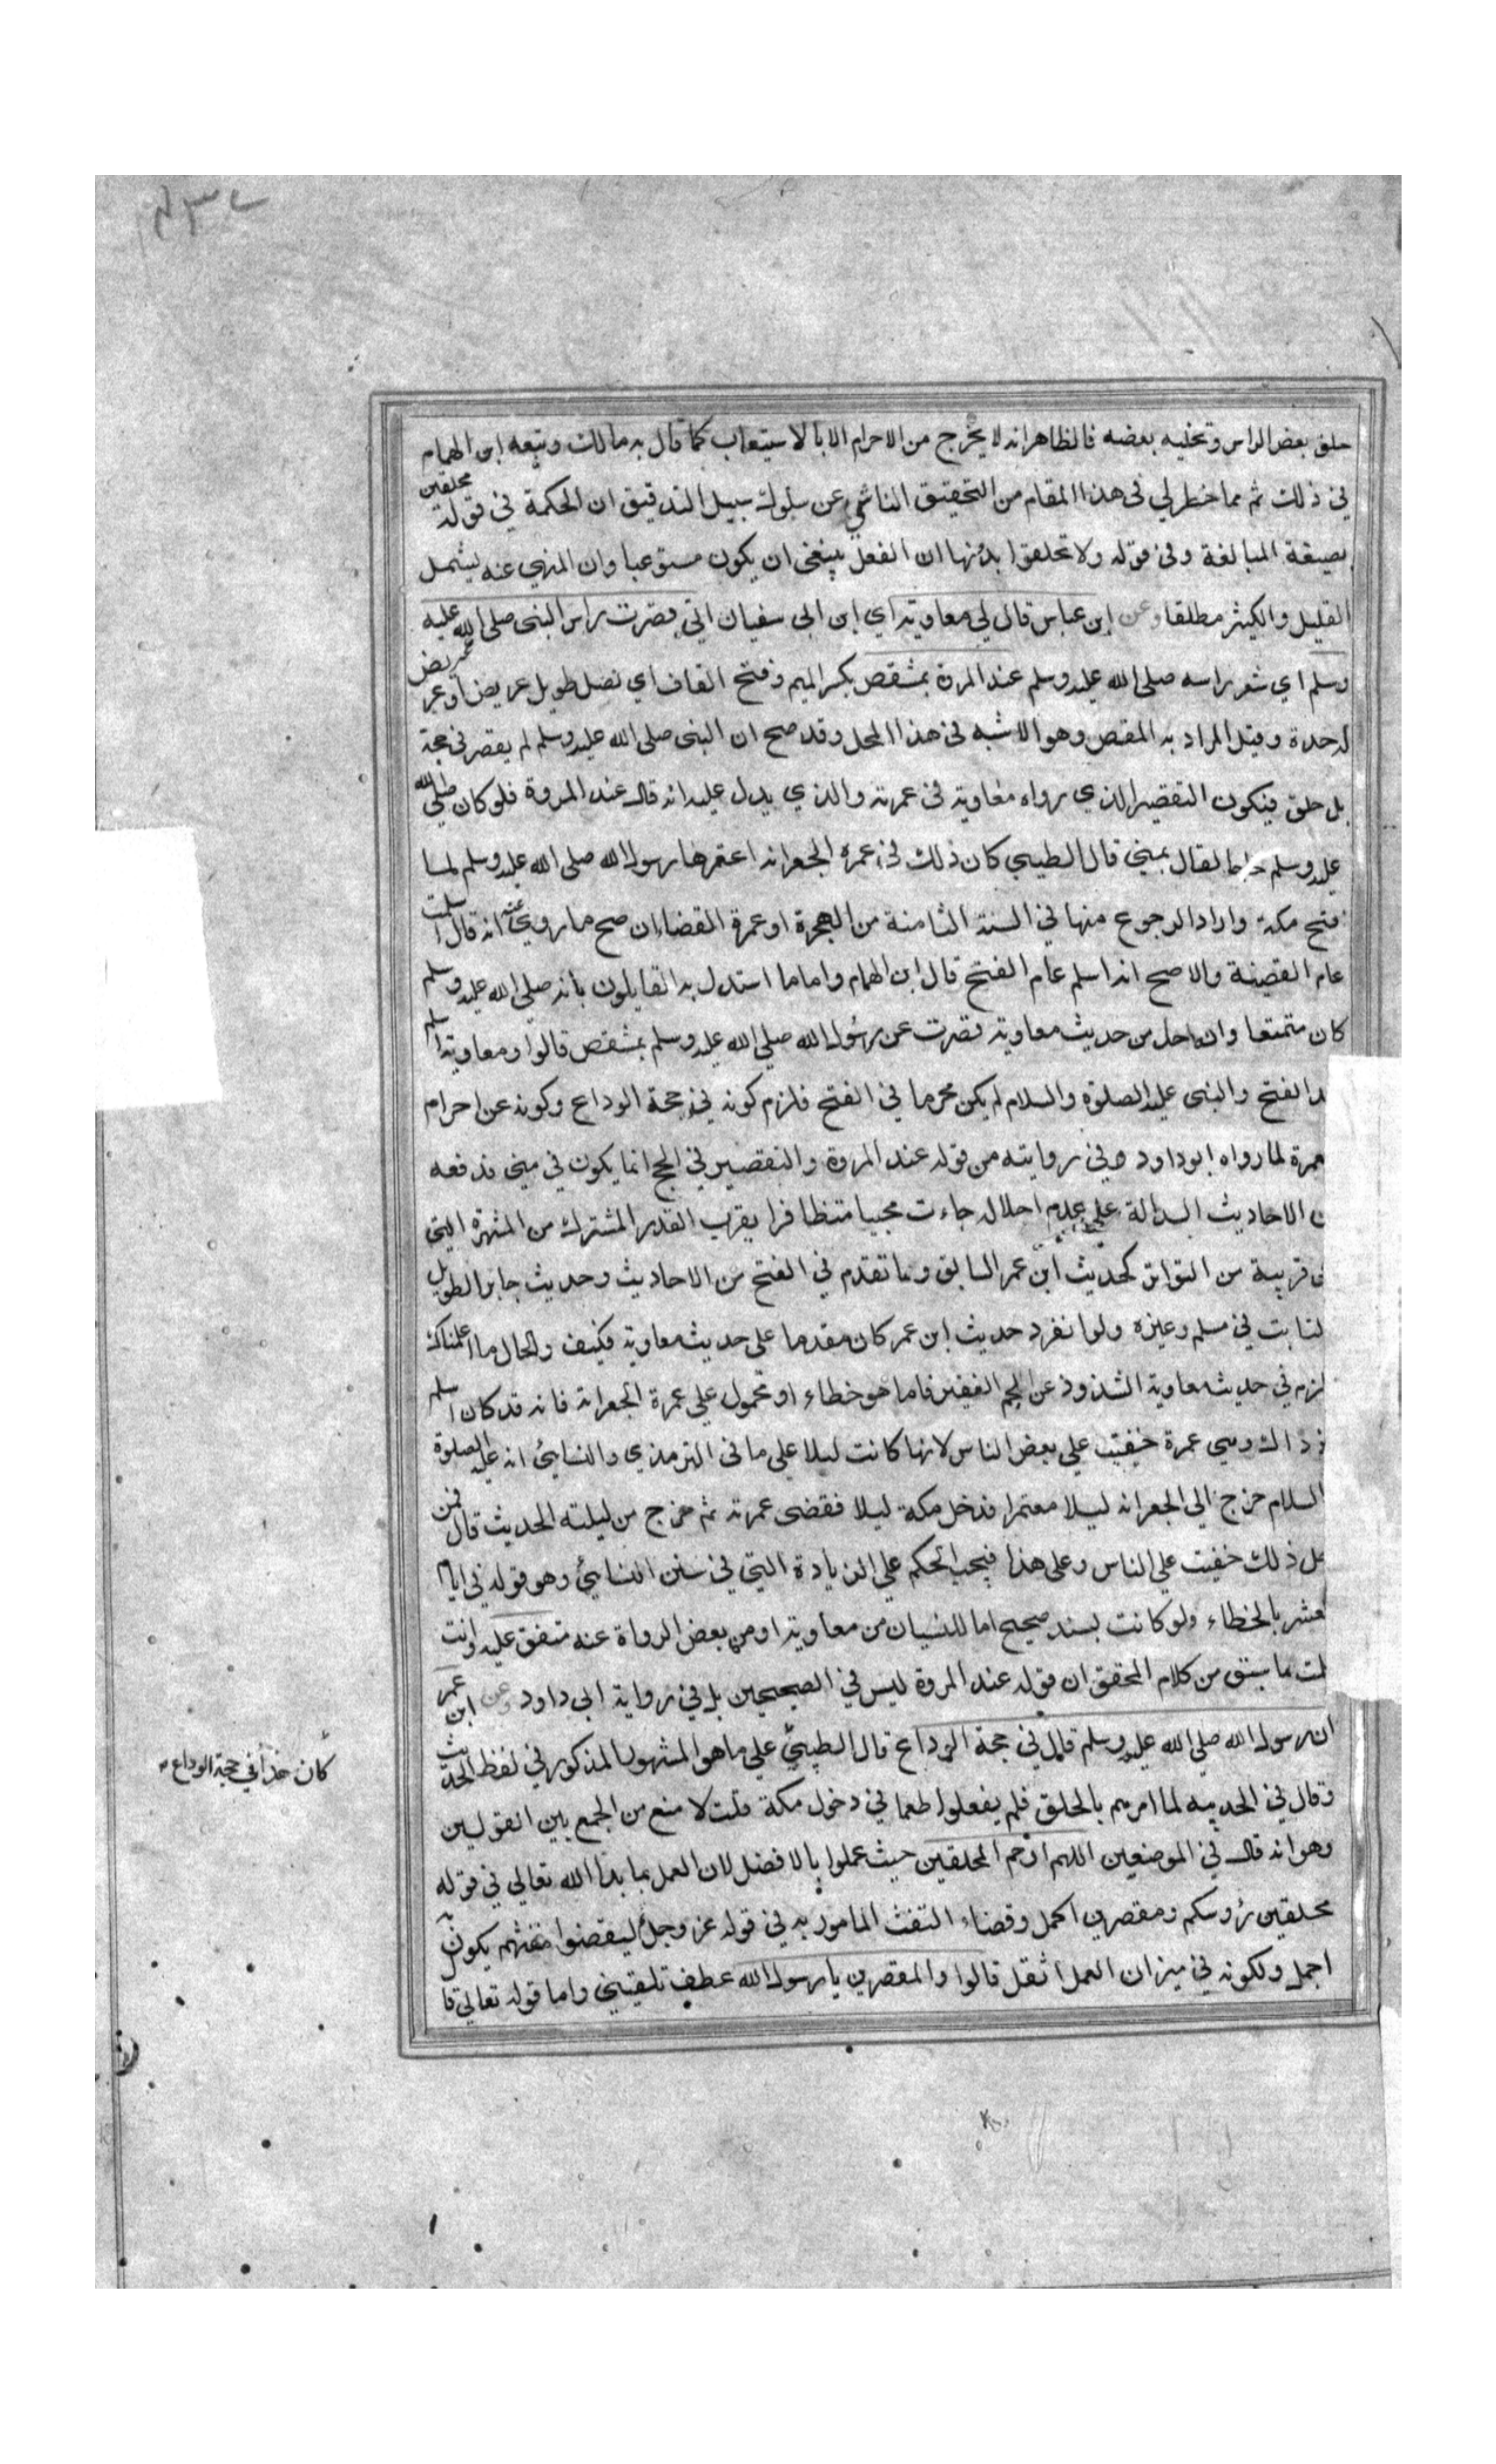 حلق بعض الراس وتخليه بعضه فالظاهر انه لا يخرج من الاحرام الا بالاستيعاب كما قال به مالك وتبعه ابن الهمام
في ذلك ثم مما خطر لي في هذا المقام من التحقيق الناشي عن سلوك سبيل التدقيق ان الحكمة في قوله محلقين
بصيغة المبالغة وفي قوله ولا تحلقوا بدونها ان الفعل ينبغي ان يكون مستوعبا وان المنهي عنه ليشمل
القليل والكثير مطلقا وعن ابن عباس قال لي معاوية اي ابن ابي سفيان اني قصرت راس النبي صلى الله عليه
وسلم اي شعر راسه صلى الله عليه وسلم عند المروة بمشقص بكسر الميم وفتح القاف اي نصل طويل عريض او غير عريض
له حدة وقيل المراد به المقص وهو الاشبه في هذا المحل وقد صح ان النبي صلى الله عليه وسلم لم يقصر في حجة
بل حلق فيكون التقصير الذي رواه معاوية في عمرته والذي يدل عليه انه قال عند المروة فلو كان صلى الله
عليه وسلم حاجا لقال بمنى قال الطيبي كان ذلك في عمرة الجعرانه اعتمرها رسول الله صلى الله عليه وسلم لما
فتح مكة واراد الرجوع منها في السنة الثامنة من الهجرة او عمرة القضاء ان صح ما روي عنه انه قال اسلمت
عام القضية والاصح انه اسلم عام الفتح قال ابن الهمام واما ما استدل به القايلون بانه صلى الله عليه وسلم
كان متمتعا وانه احل من حديث معاوية قصرت عن رسول الله صلى الله عليه وسلم بمشقص قالوا ومعاوية اسلم
الفتح والنبي عليه الصلوة والسلام لم يكن محرما في الفتح فلزم كونه في حجة الوداع وكونه عن احرام
عمرة لما رواه ابو داود وفي روايته من قوله عند المروة والتقصير في الحج انما يكون في منى فدفعه
ن الاحاديث الدالة على عدم احلاله جاءت مجيا متظافرا يقرب القدر المشترك من الشهرة التي
قريبة من التواتر كحديث ابن عمر السابق وما تقدم في الفتح من الاحاديث وحديث جابر الطويل
لثابت في مسلم وغيره ولو انفرد حديث ابن عمر كان مقدما على حديث معاوية فكيف والحال ما اعلمناك
لزم في حديث معاوية الشذوذ عن الجم الغفير فاما هو خطاء او محمول على عمرة الجعرانة فانه قد كان اسلم
ذ ذاك وهي عمرة خفيت على بعض الناس لانها كانت ليلا على ما في الترمذي والنسائي انه عليه الصلوة
السلام خرج الى الجعرانه ليلا معتمرا فدخل مكة ليلا فقضى عمرته ثم خرج من ليلته الحديث قال فمن
جل ذلك خفيت على الناس وعلى هذا فيجب الحكم على الزيادة التي في سنن النسائي وهو قوله في ايام
لعشر بالخطاء ولو كانت بسند صحيح اما للنسيان من معاوية او من بعض الرواة عنه متفق عليه وانت
لمت ما سبق من كلام المحقق ان قوله عند المروة ليس في الصحيحين بل في رواية ابي داود وعن ابن عمر
ان رسول الله صلى الله عليه وسلم قال في حجة الوداع قال الطيبي على ما هو المشهور المذكور في لفظ الحديث
كان هذا في حجة الوداع
وقال في الحديبيه لما امرهم بالحلق فلم يفعلوا طمعا في دخول مكة قلت لا منع من الجمع بين القولين
وهو انه قال في الموضعين اللهم ارحم المحلقين حيث عملوا بالافضل لان العمل بما بدا الله تعالى في قوله
محلقين رؤسكم ومقصرين اكمل وقضاء التفث المامور به في قوله عز وجل ليقضوا تفثهم يكون به
اجمل ولكونه في ميزان العمل اثقل قالوا والمقصرين يا رسول الله عطف تلقيني واما قوله تعالى قا